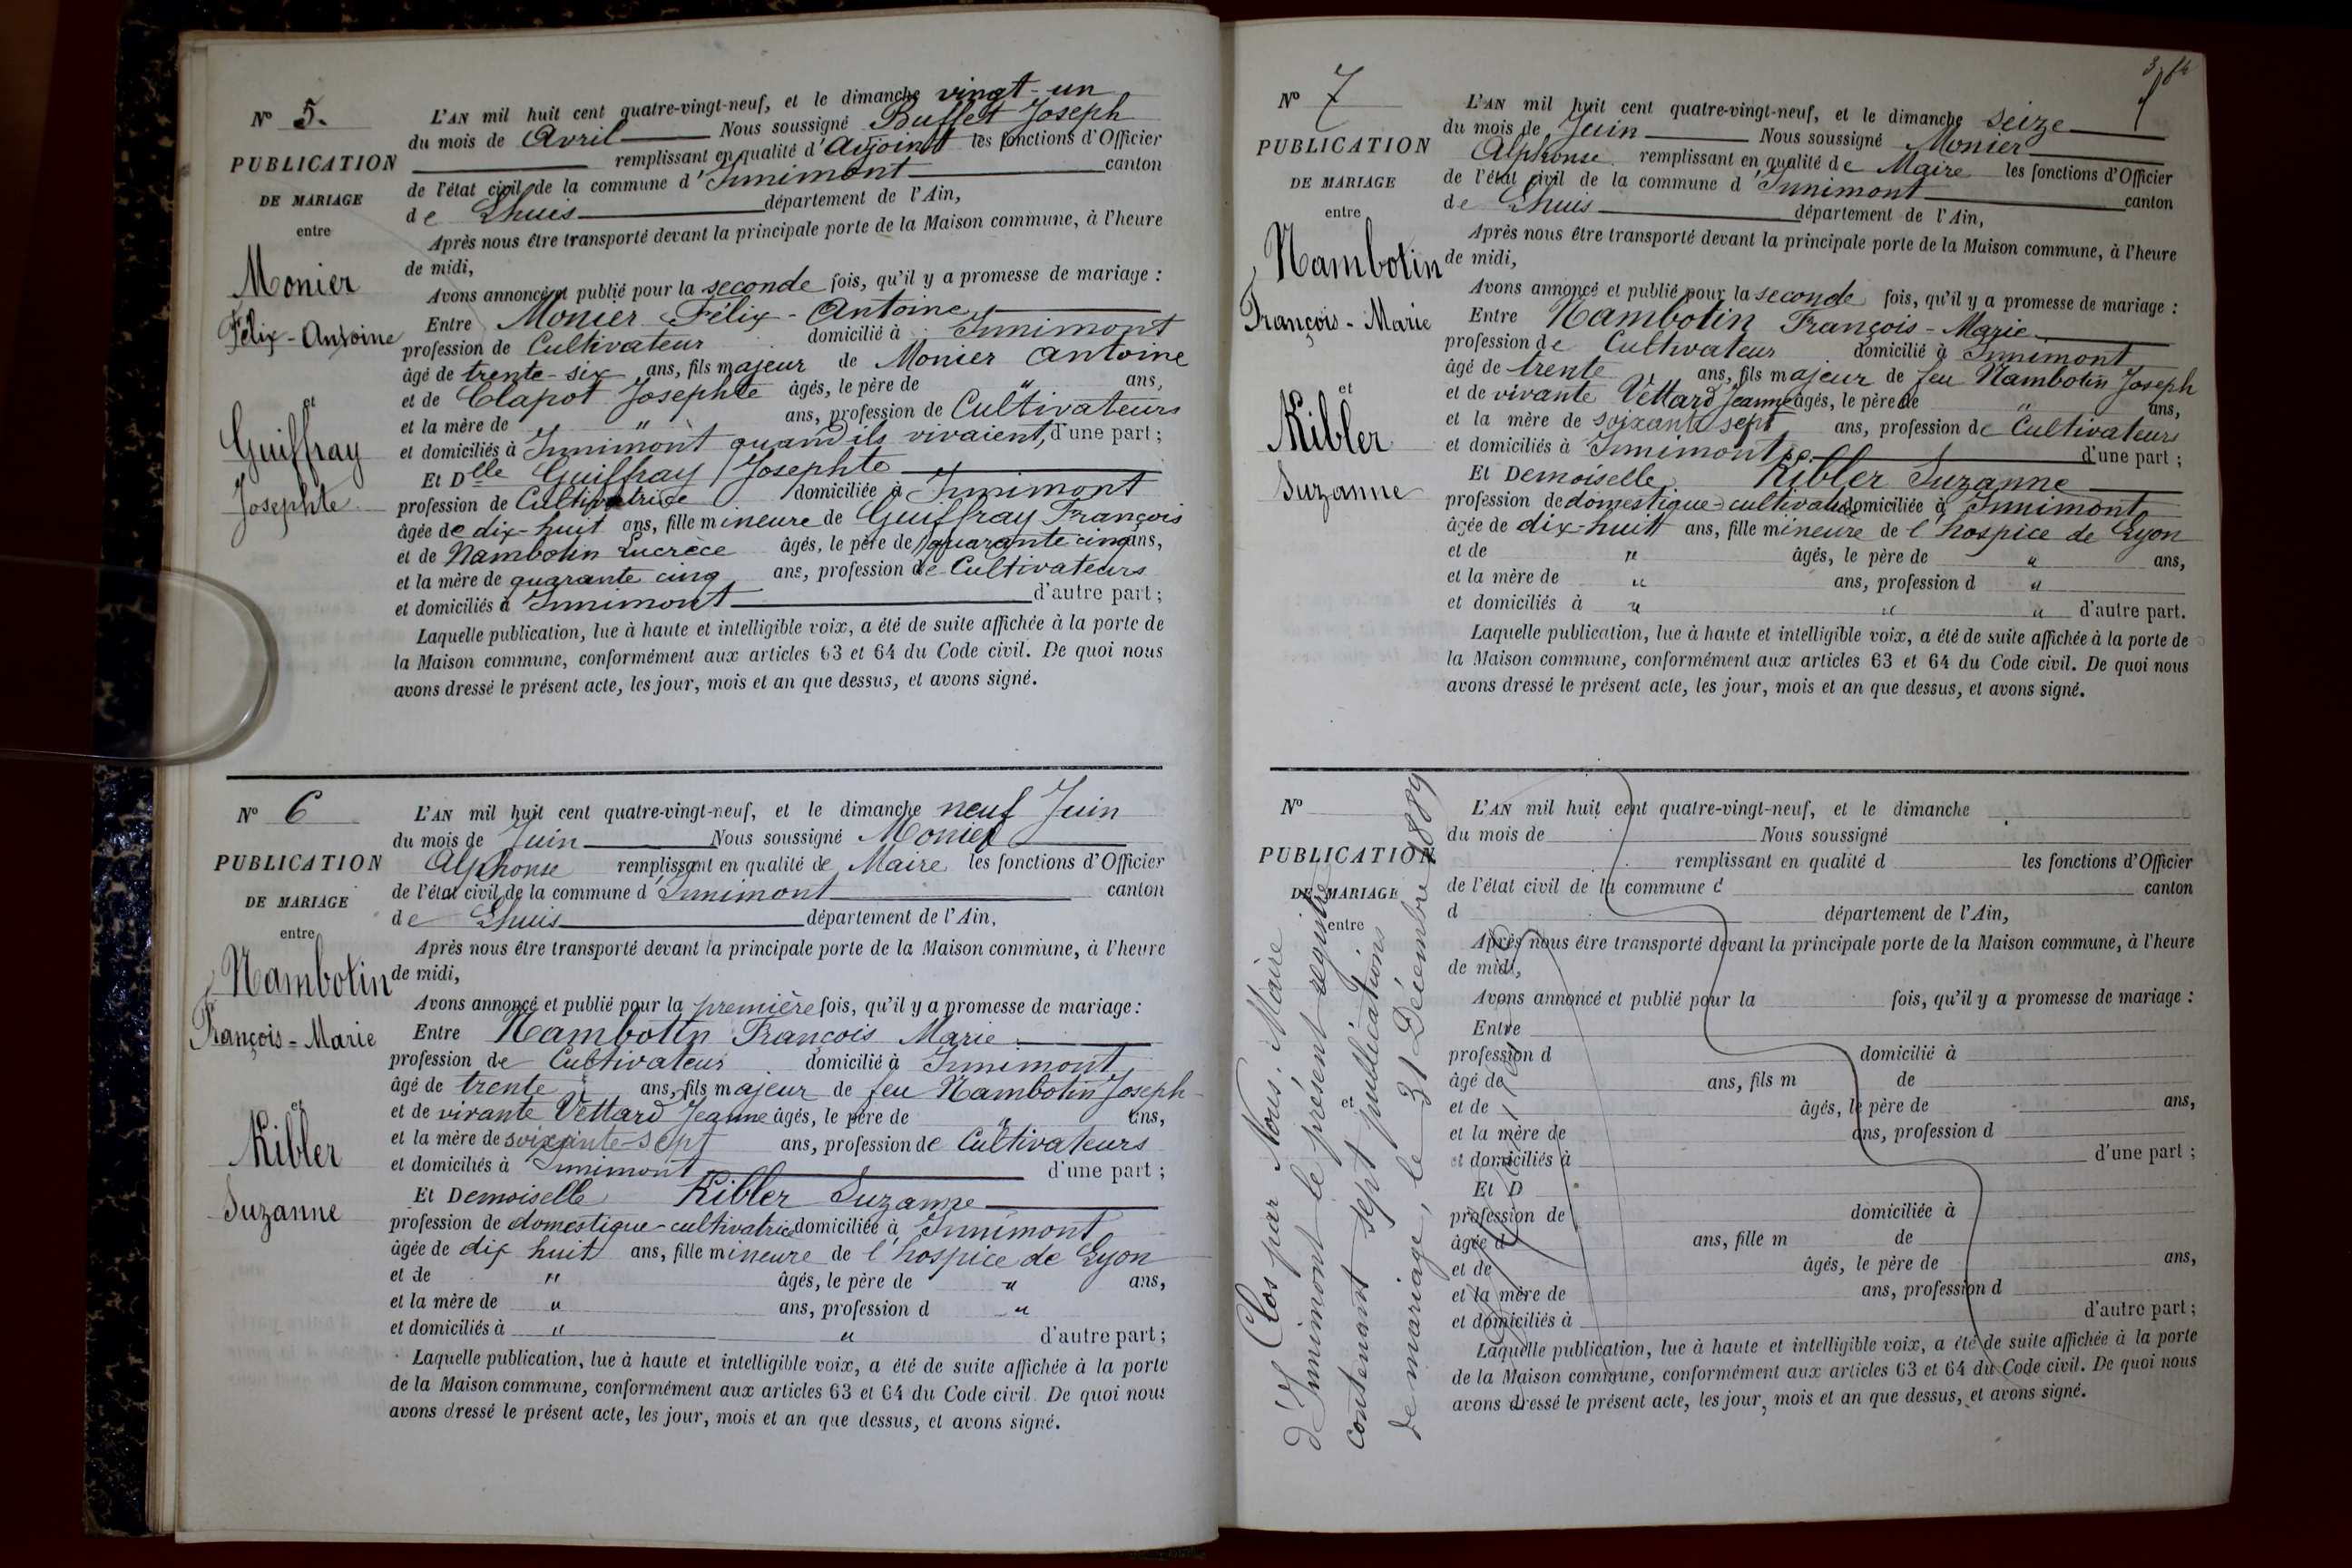 N° 5.
PUBLICATION
DE MARIAGE
entre
Monier
Félix-Antoine
et
Guiffray
Josephte
L'AN mil huit cent quatre-vingt-neuf, et le dimanche vingt-un
du mois de Avril Nous soussigné Buffet Joseph
remplissant en qualité d'Adjoint les fonctions d'Officier
de l'état civil de la commune d'Innimont canton
de Lhuis département de l'Ain,
Après nous être transporté devant la principale porte de la Maison commune, à l'heure
de midi,
Avons annoncé et publié pour la seconde fois, qu'il y a promesse de mariage :
Entre Monier Félix-Antoine
profession de Cultivateur domicilié à Innimont
âgé de trente-six ans, fils majeur de Monier Antoine
et de Clapot Josephte âgés, le père de " ans,
et la mère de " ans, profession de Cultivateurs
et domiciliés à Innimont quand ils vivaient, d'une part ;
Et Dlle Guiffray Josephte
profession de Cultivatrice domiciliée à Innimont
âgée de dix-huit ans, fille mineure de Guiffray François
et de Nambotin Lucrèce âgés, le père de quarante cinq ans,
et la mère de quarante cinq ans, profession de Cultivateurs
et domiciliés à Innimont d'autre part ;
Laquelle publication, lue à haute et intelligible voix, a été de suite affichée à la porte de
la Maison commune, conformément aux articles 63 et 64 du Code civil. De quoi nous
avons dressé le présent acte, les jour, mois et an que dessus, et avons signé.
N° 6
PUBLICATION
DE MARIAGE
entre
Nambotin
François-Marie
et
Kibler
Suzanne
L'AN mil huit cent quatre-vingt-neuf, et le dimanche neuf Juin
du mois de Juin Nous soussigné Monier
Alphonse remplissant en qualité de Maire les fonctions d'Officier
de l'état civil de la commune d'Innimont canton
de Lhuis département de l'Ain,
Après nous être transporté devant la principale porte de la Maison commune, à l'heure
de midi,
Avons annoncé et publié pour la première fois, qu'il y a promesse de mariage :
Entre Nambotin François Marie
profession de Cultivateur domicilié à Innimont
âgé de trente ans, fils majeur de feu Nambotin Joseph
et de vivante Vettard Jeanne âgés, le père de " ans,
et la mère de soixante-sept ans, profession de Cultivateurs
et domiciliés à Innimont d'une part ;
Et Demoiselle Kibler Suzanne
profession de domestique-cultivatrice domiciliée à Innimont
âgée de dix huit ans, fille mineure de l'hospice de Lyon
et de " âgés, le père de " ans,
et la mère de " ans, profession d "
et domiciliés à " " d'autre part ;
Laquelle publication, lue à haute et intelligible voix, a été de suite affichée à la porte
de la Maison commune, conformément aux articles 63 et 64 du Code civil. De quoi nous
avons dressé le présent acte, les jour, mois et an que dessus, et avons signé.
N° 7
PUBLICATION
DE MARIAGE
entre
Nambotin
François-Marie
et
Kibler
Suzanne
L'AN mil huit cent quatre-vingt-neuf, et le dimanche seize
du mois de Juin Nous soussigné Monier
Alphonse remplissant en qualité de Maire les fonctions d'Officier
de l'état civil de la commune d'Innimont canton
de Lhuis département de l'Ain,
Après nous être transporté devant la principale porte de la Maison commune, à l'heure
de midi,
Avons annoncé et publié pour la seconde fois, qu'il y a promesse de mariage :
Entre Nambotin François-Marie
profession de Cultivateur domicilié à Innimont
âgé de trente ans, fils majeur de feu Nambotin Joseph
et de vivante Vettard Jeanne âgés, le père de " ans,
et la mère de soixante sept ans, profession de Cultivateurs
et domiciliés à Innimont d'une part ;
Et Demoiselle Kibler Suzanne
profession de domestique-cultivatrice domiciliée à Innimont
âgée de dix-huit ans, fille mineure de l'hospice de Lyon
et de " âgés, le père de " ans,
et la mère de " ans, profession d "
et domiciliés à " " " d'autre part.
Laquelle publication, lue à haute et intelligible voix, a été de suite affichée à la porte de
la Maison commune, conformément aux articles 63 et 64 du Code civil. De quoi nous
avons dressé le présent acte, les jour, mois et an que dessus, et avons signé.
N°
PUBLICATION
DE MARIAGE
entre
et
L'AN mil huit cent quatre-vingt-neuf, et le dimanche
du mois de Nous soussigné
remplissant en qualité d les fonctions d'Officier
de l'état civil de la commune d canton
d département de l'Ain,
Après nous être transporté devant la principale porte de la Maison commune, à l'heure
de midi,
Avons annoncé et publié pour la fois, qu'il y a promesse de mariage :
Entre
profession d domicilié à
âgé de ans, fils m de
et de âgés, le père de ans,
et la mère de ans, profession d
et domiciliés à d'une part ;
Et D
profession de domiciliée à
âgée d ans, fille m de
et de âgés, le père de ans,
et la mère de ans, profession d
et domiciliés à d'autre part ;
Laquelle publication, lue à haute et intelligible voix, a été de suite affichée à la porte
de la Maison commune, conformément aux articles 63 et 64 du Code civil. De quoi nous
avons dressé le présent acte, les jour, mois et an que dessus, et avons signé.
Clos par Nous. Maire
d'Innimont le présent registre
contenant sept publications
de mariage, le 31 Décembre 1889